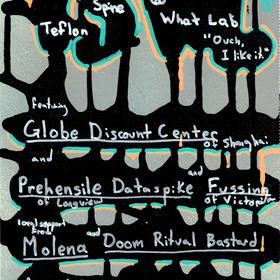 Spine
Teflon
What Lab
"Ouch,
I like it"
featuring
Globe Discount Center
of Shanghai
and
and
Prehensile Dataspike Fussing
of Longview of Victoria
local support
from
Molena and Doom Ritual Bastard